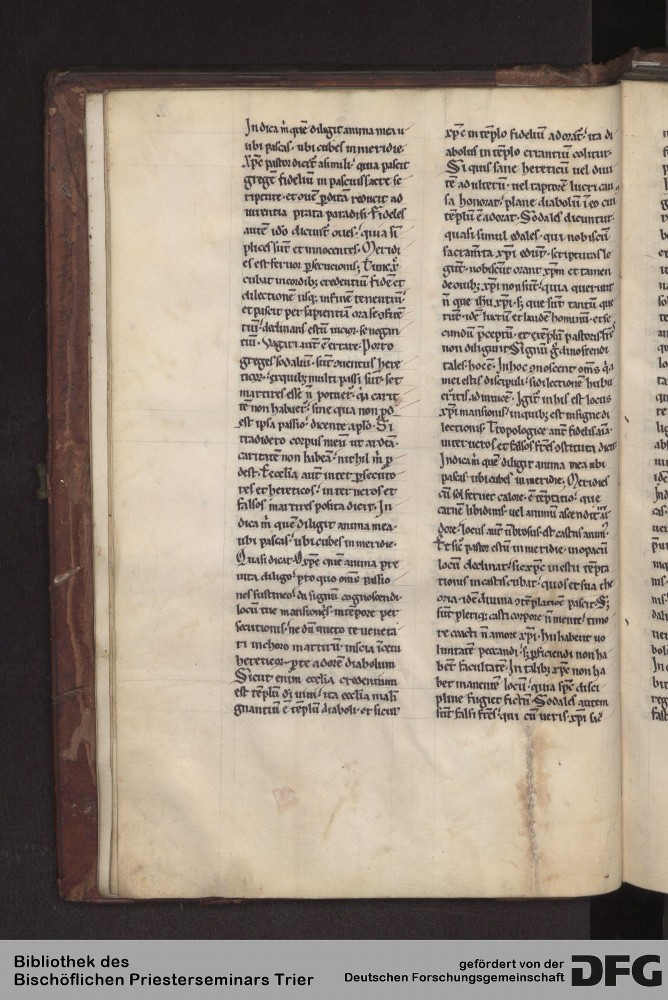 Indica m̄ que diligit anima mea u
ubi pascas· ubi cubes in meridie·
xp̄c pastor dicit᷑ a simili· quia pascit
gregē fideliū in pascuis sacre sc
ripture· et ouē ꝑditā reducit ad
uirentia prata paradisi· fideles
autē ido dicunt᷑ oues· quia sī
plices sūt et innocentes· Meridi
es est feruor ꝑsecucionis·
cubat in cordibus credentiū fidē et
dilectionē usq; in finē tenentiū·
et pascit per sapientiā
declinans estū
tiū· Vagari aut̄ ē errare· Porto
greges sodaliū· sūt conuentus here
ticoꝝ· ex quibꝰ multi passi sūt· set
martires esse n̄ potuer̄· q̄a carita
tē non habuer̄· sine qua non ꝓd
est ipsa passio· dicente aplo· Si
tradidero corpus meū ut ardeā·
caritatē non habeā· nichil m̄ ꝓ
dest· Et ecclīa aut̄ inter ꝑsecuto
res et hereticos· inter ueros et
falsos martires posita dicit· In
dica m̄ quē diligit anima mea·
ubi pascas· ubi cubes in meridie·
Quasi dicat· O xp̄e quē anima pre
uita diligo· pro quo om̄s passio
nes sustineo· da signū cognoscendi
locū tue mansionis· in tēpore per
secutionis· ne dū quero te uenera
ri in choro martirū· inscia in cetu
hereticoꝝ· ꝑ te adorē diabolum
Sicut enim ecclīa credentium
est tēplū di uiui· ita ecclīa mali
gnantiū ē tēplū diaboli· et sicut
xp̄c in tēplo fideliū adorat᷑· ita di
abolus in tēplo errantiū colitur·
Si quis sane hereticū uel diui
tē adulterū· uel raptorē lucri cau
sa honorat· plane diabolū
tēplū ē adorat· Sodales dicuntur·
quasi simul edales· qui nobiscū
sacram̄ta xp̄i edūt· scripturas le
gūt· nobiscū orant xp̄m et tamen
de ouibꝰ xp̄i non sūt· quia querunt
n̄ que ihu xp̄i· s; que sua sūt
rūt· id ē lucrū et laudē hominū· et se
cundū p̄ceptū· et exēplū pastoris
non diligunt· Signū
tale· hoc ē· In hoc cognoscent om̄s q̄a
mei estis discipuli· si dilectionē habu
eritis adinuicē· Igit᷑ in his est locus
xp̄i mansionis· in quibꝰ est insigne di
lectionis· Tropologice aut̄ fidelis aīa
inter ueros et falsos fr̄es constituta dicit
Indica m̄ quē diligit anima mea ubi
pascas ubi cubes in meridie· Meridies
cū sol feruet calore· ē tēptatio· que
carnē libidinis· uel animū
dore· locus aut̄ ūbrosus· est castus animꝰ·
Et sic̄ pastor estū in meridie· in opacū
locū declinat· sic xp̄c in estu tēpta
tionis in castis cubat· quos et sua
oria· id ē diuina cōtēplatiōe pascit· S;
sūt pleriq; casti corpore n̄ mente· timo
re coacti n̄ amore xp̄i· hii habent uo
luntatē peccandi· s; ꝑficiendi non ha
bēt facultatē· In talibꝰ xp̄c non ha
bet manentē locū· quia spc̄ disci
pline fugiet fictū· Sodales autem
sūt falsi fr̄es· qui cū ueris xp̄i sac̄
Bibliothek des
Bischöflichen Priesterseminars Trier
gefördert von der
Deutschen Forschungsgemeinschaft
DFG